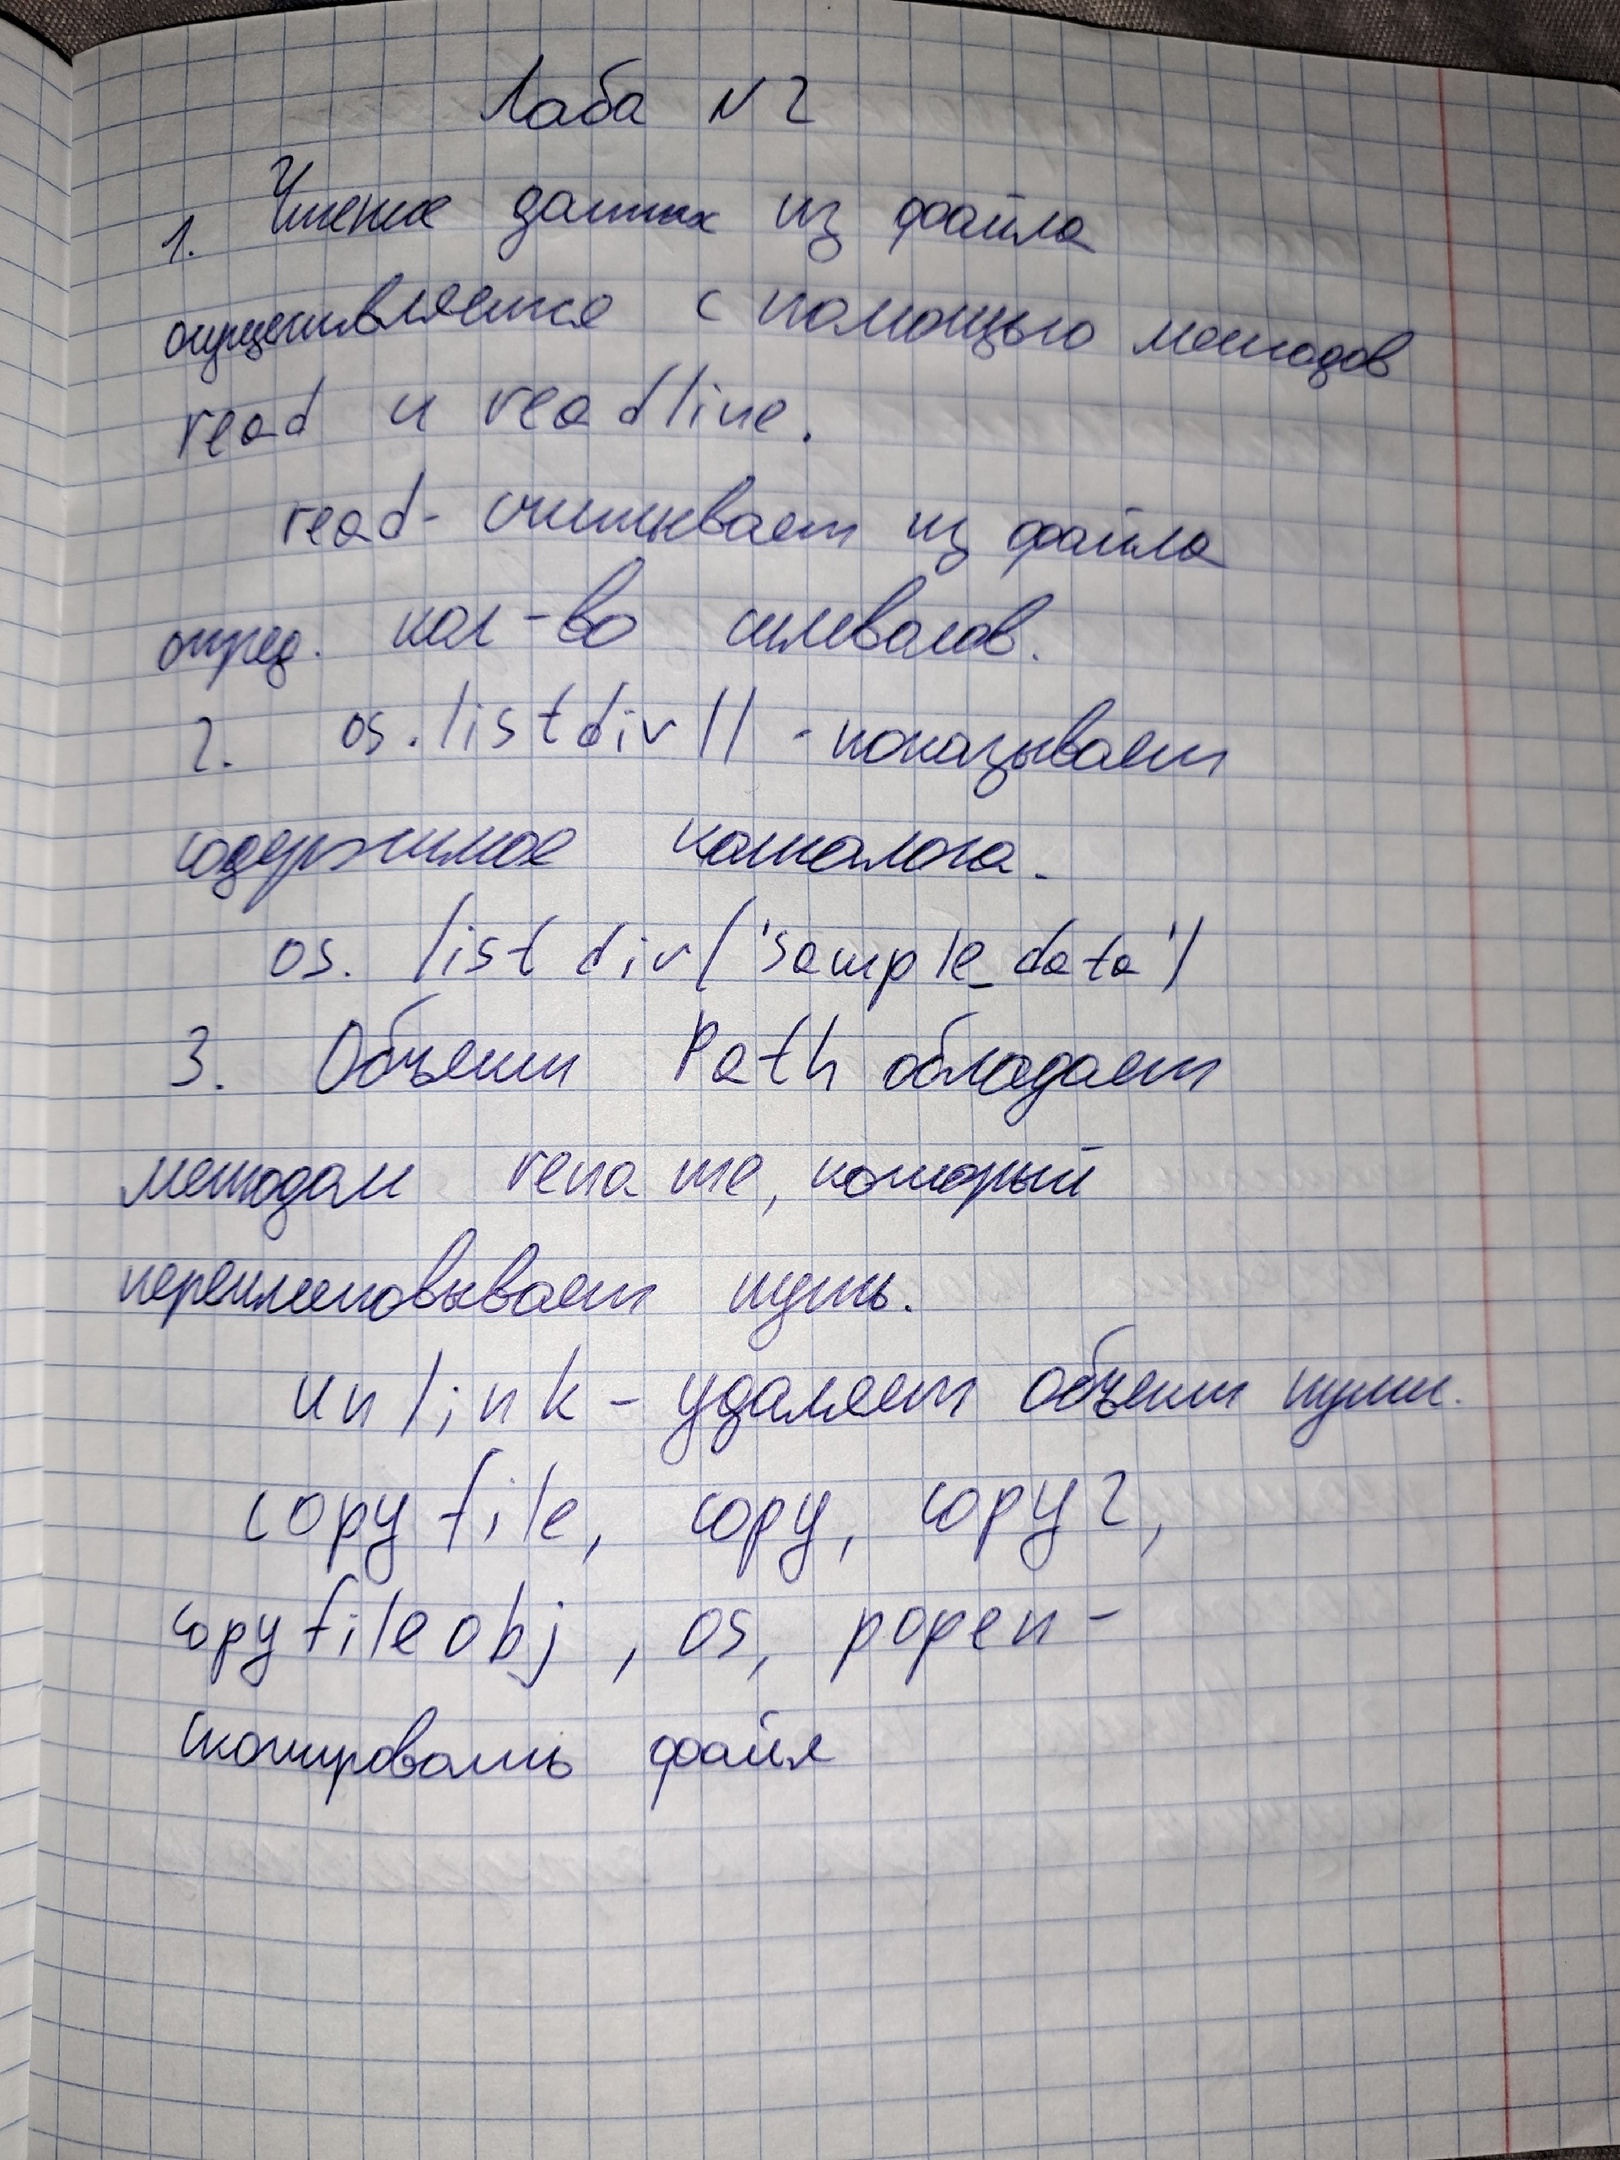 Лаба N2
1. Чтение данных из файла
осуществляется с помощью методов
read и readline.
read - считывает из файла
опред. кол-во символов.
2. os.listdir() - показывает
содержимое каталога.
os.listdir('sample_data')
3. Объект Path обладает
методом rename, который
переименовывает путь.
unlink - удаляет объект пути.
copyfile, copy, copy2,
copyfileobj, os, popen -
скопировать файл